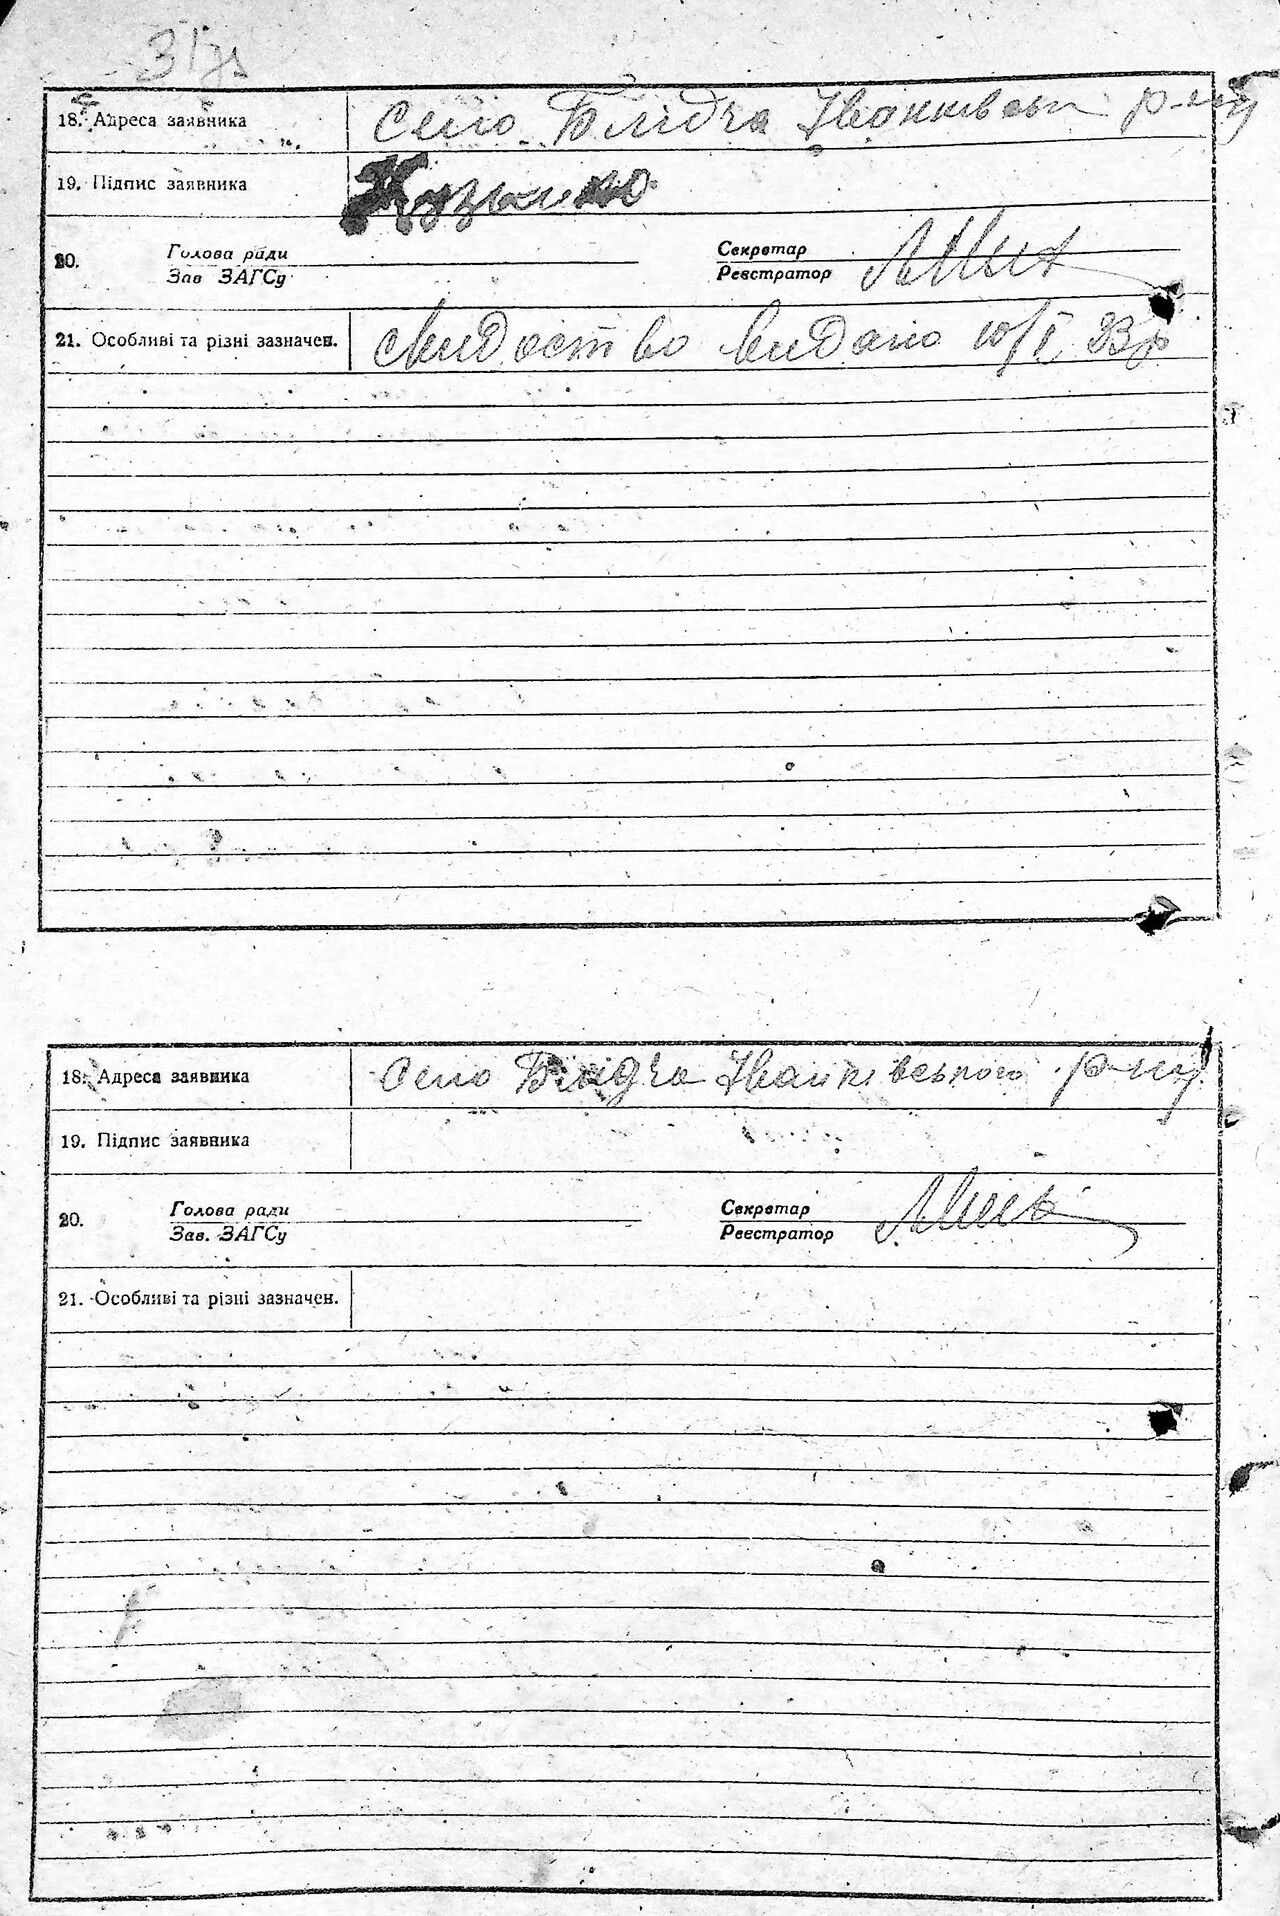 31 зв
18. Адреса заявника Село Блідча Іванківськ р-ну
19. Підпис заявника Кузьменко
20. Голова ради Секретар
Зав ЗАГСу Реєстратор
21. Особливі та різні зазначен. Свидоство видано 10/I 33 р
18. Адреса заявника Село Блідча Іванківського р-ну
19. Підпис заявника
20. Голова ради Секретар
Зав. ЗАГСу Реєстратор
21. Особливі та різні зазначен.